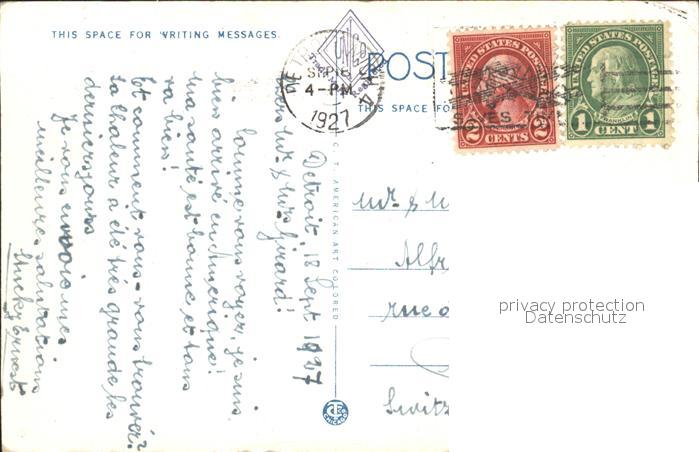 THIS SPACE FOR WRITING MESSAGES.
POST
THIS SPACE FO
SEP 18
4-PM
1927
UNITED STATES POSTAGE
2 CENTS 2
UNITED STATES POSTAGE
FRANKLIN
1 CENT 1
C. T. AMERICAN ART COLORED
Detroit, 18 Sept 1927
Mr & Mrs Girard!
Comme vous voyez, je suis
bien arrivé en Amerique!
Ma santé est bonne et tous
va bien!
Et comment vous-vous trouvez?
La chaleur a été très grande les
derniers jours
Je vous envoie mes
meilleures salutations
Ernest
Mr & M
Alfr
rue d
Switz
privacy protection
Datenschutz